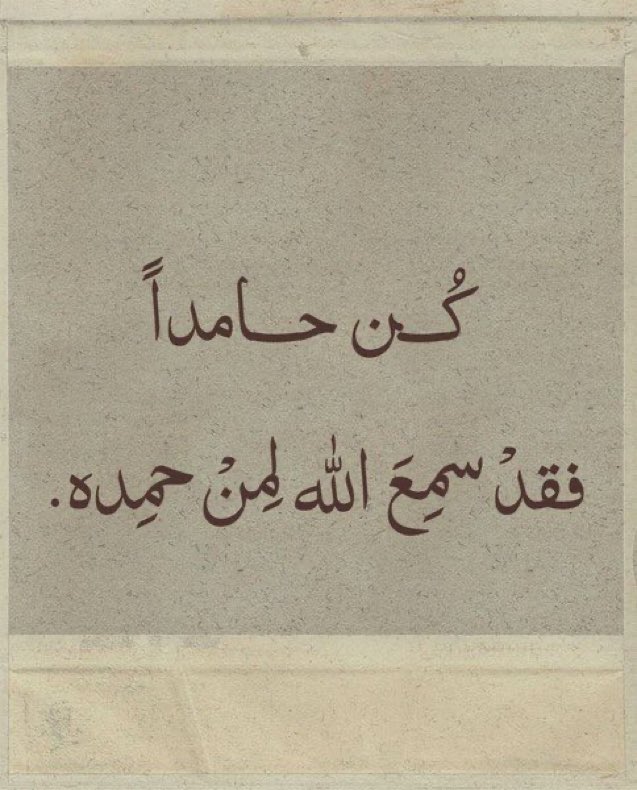 كُن حامداً
فقدْ سمِعَ الله لِمنْ حمِده.